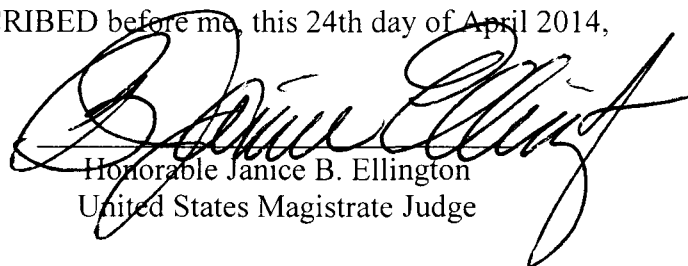 RIBED before me, this 24th day of April 2014,
B. Janice Ellington
Honorable Janice B. Ellington
United States Magistrate Judge